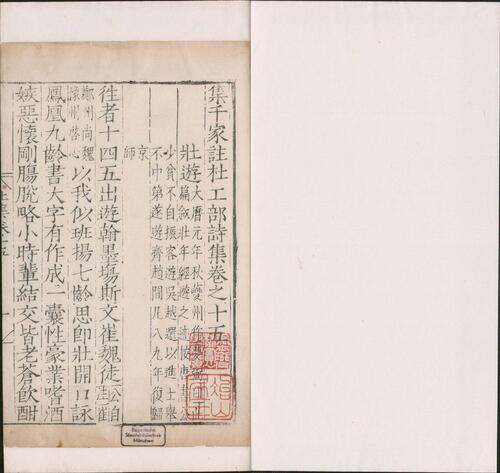 集千家註杜工部詩集卷之十五
壯遊大曆元年秋夔州作
篇敘壯年經遊之
少貧不自振客遊吳越還以進士舉
不中第遂遊齊趙間凡八九年復歸
京師
往者十四五出遊翰墨場斯文崔魏徒公自註崔
鄭州尚魏豫州啓心以我似班揚七齡思即壯開口詠
鳳凰九齡書大字有作成一囊性豪業嗜酒
嫉惡懷剛腸脫略小時輩結交皆老蒼飲酣
Bayerische
Staatsbibliothek
München